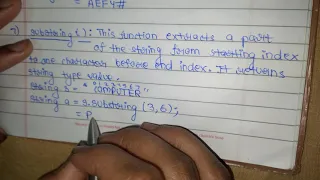 = AEF4#
7) substring( ): This function extracts a part
of the string form starting index
to one character before end index. It returns
string type value.
0 1 2 3 4 5 6 7
string s = "COMPUTER"
string a = s.substring (3,6);
= P